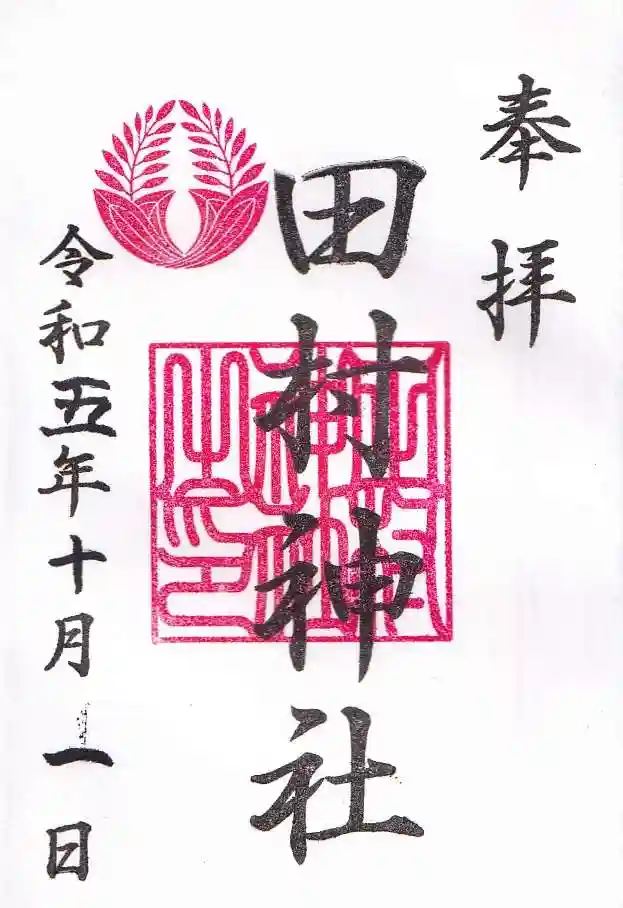 奉拝
田村神社
令和五年十月一日